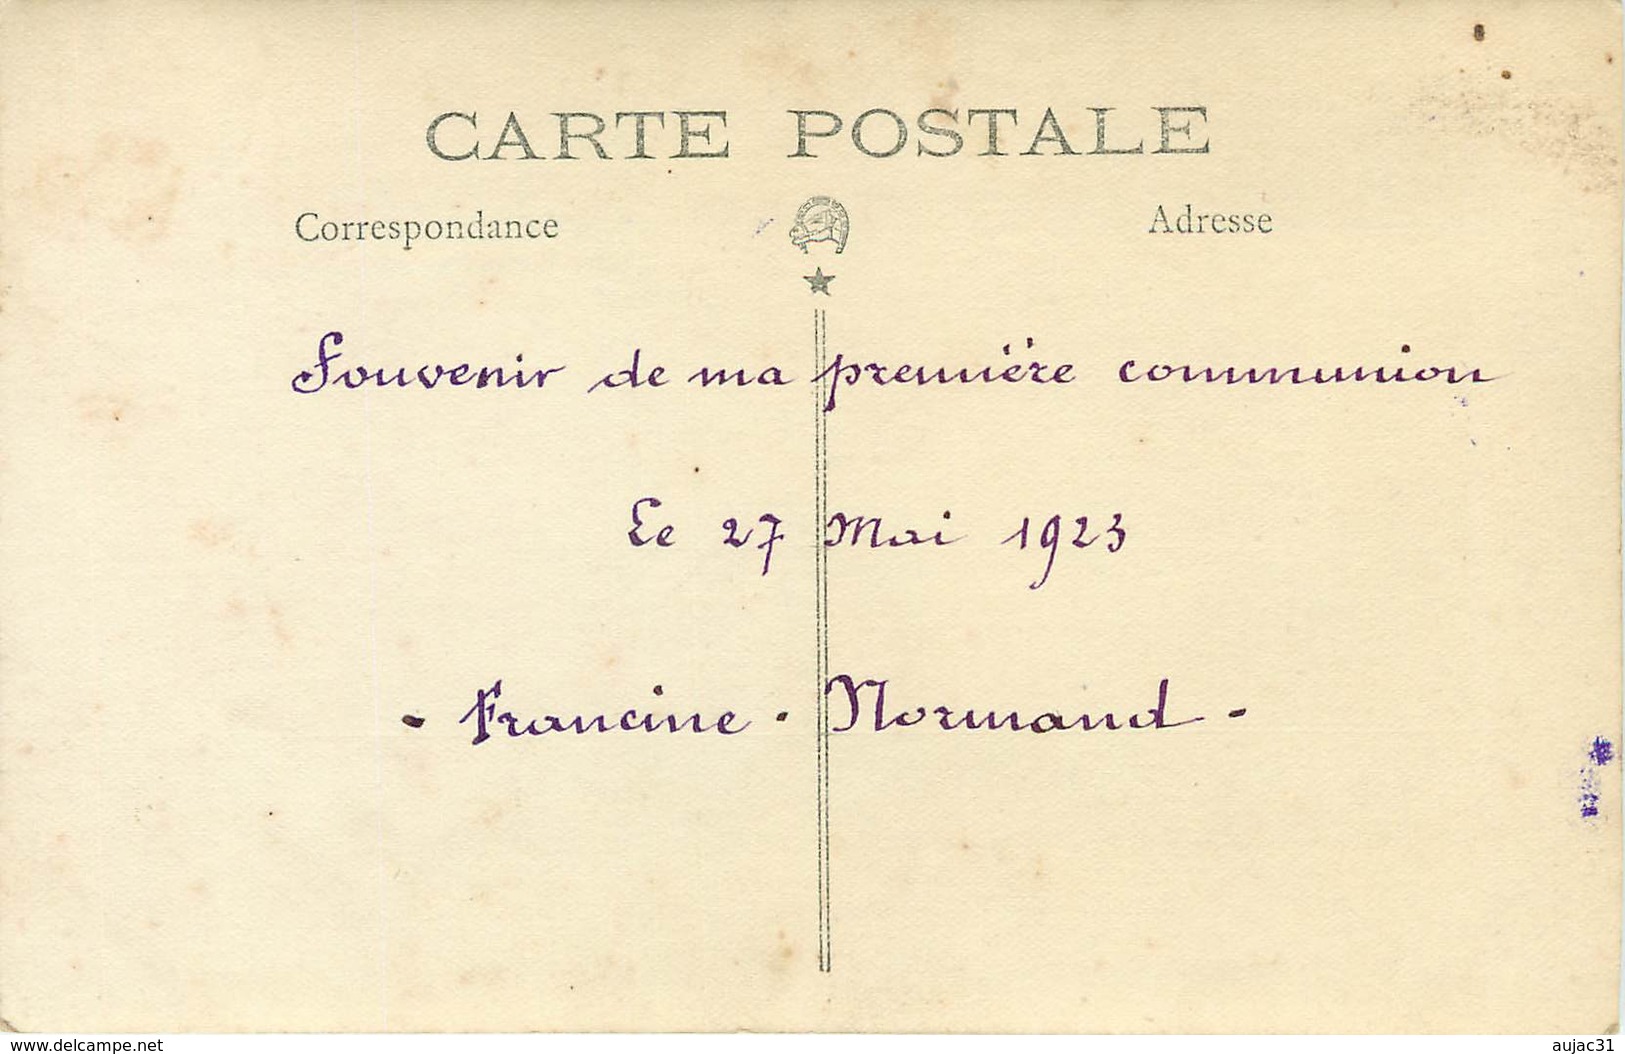 CARTE POSTALE
Correspondance
Adresse
Souvenir de ma première communion
Le 27 Mai 1923
- Francine - Normand -
www.delcampe.net
aujac31